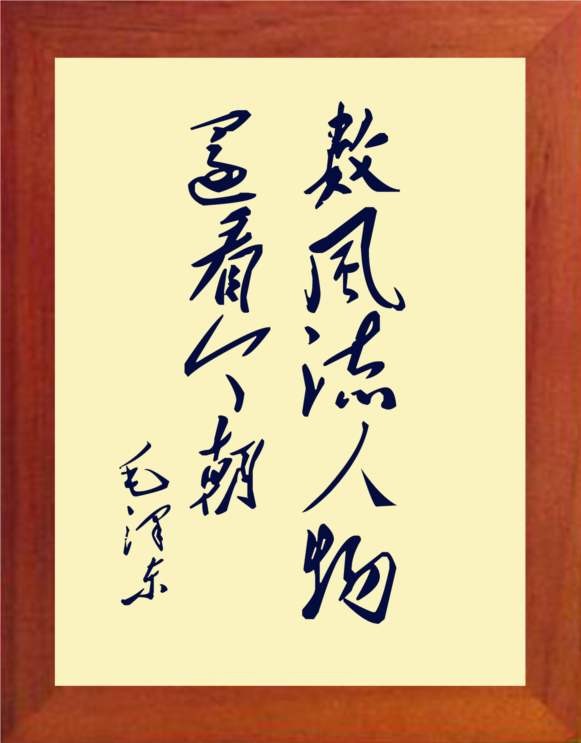 數風流人物
還看今朝
毛泽东